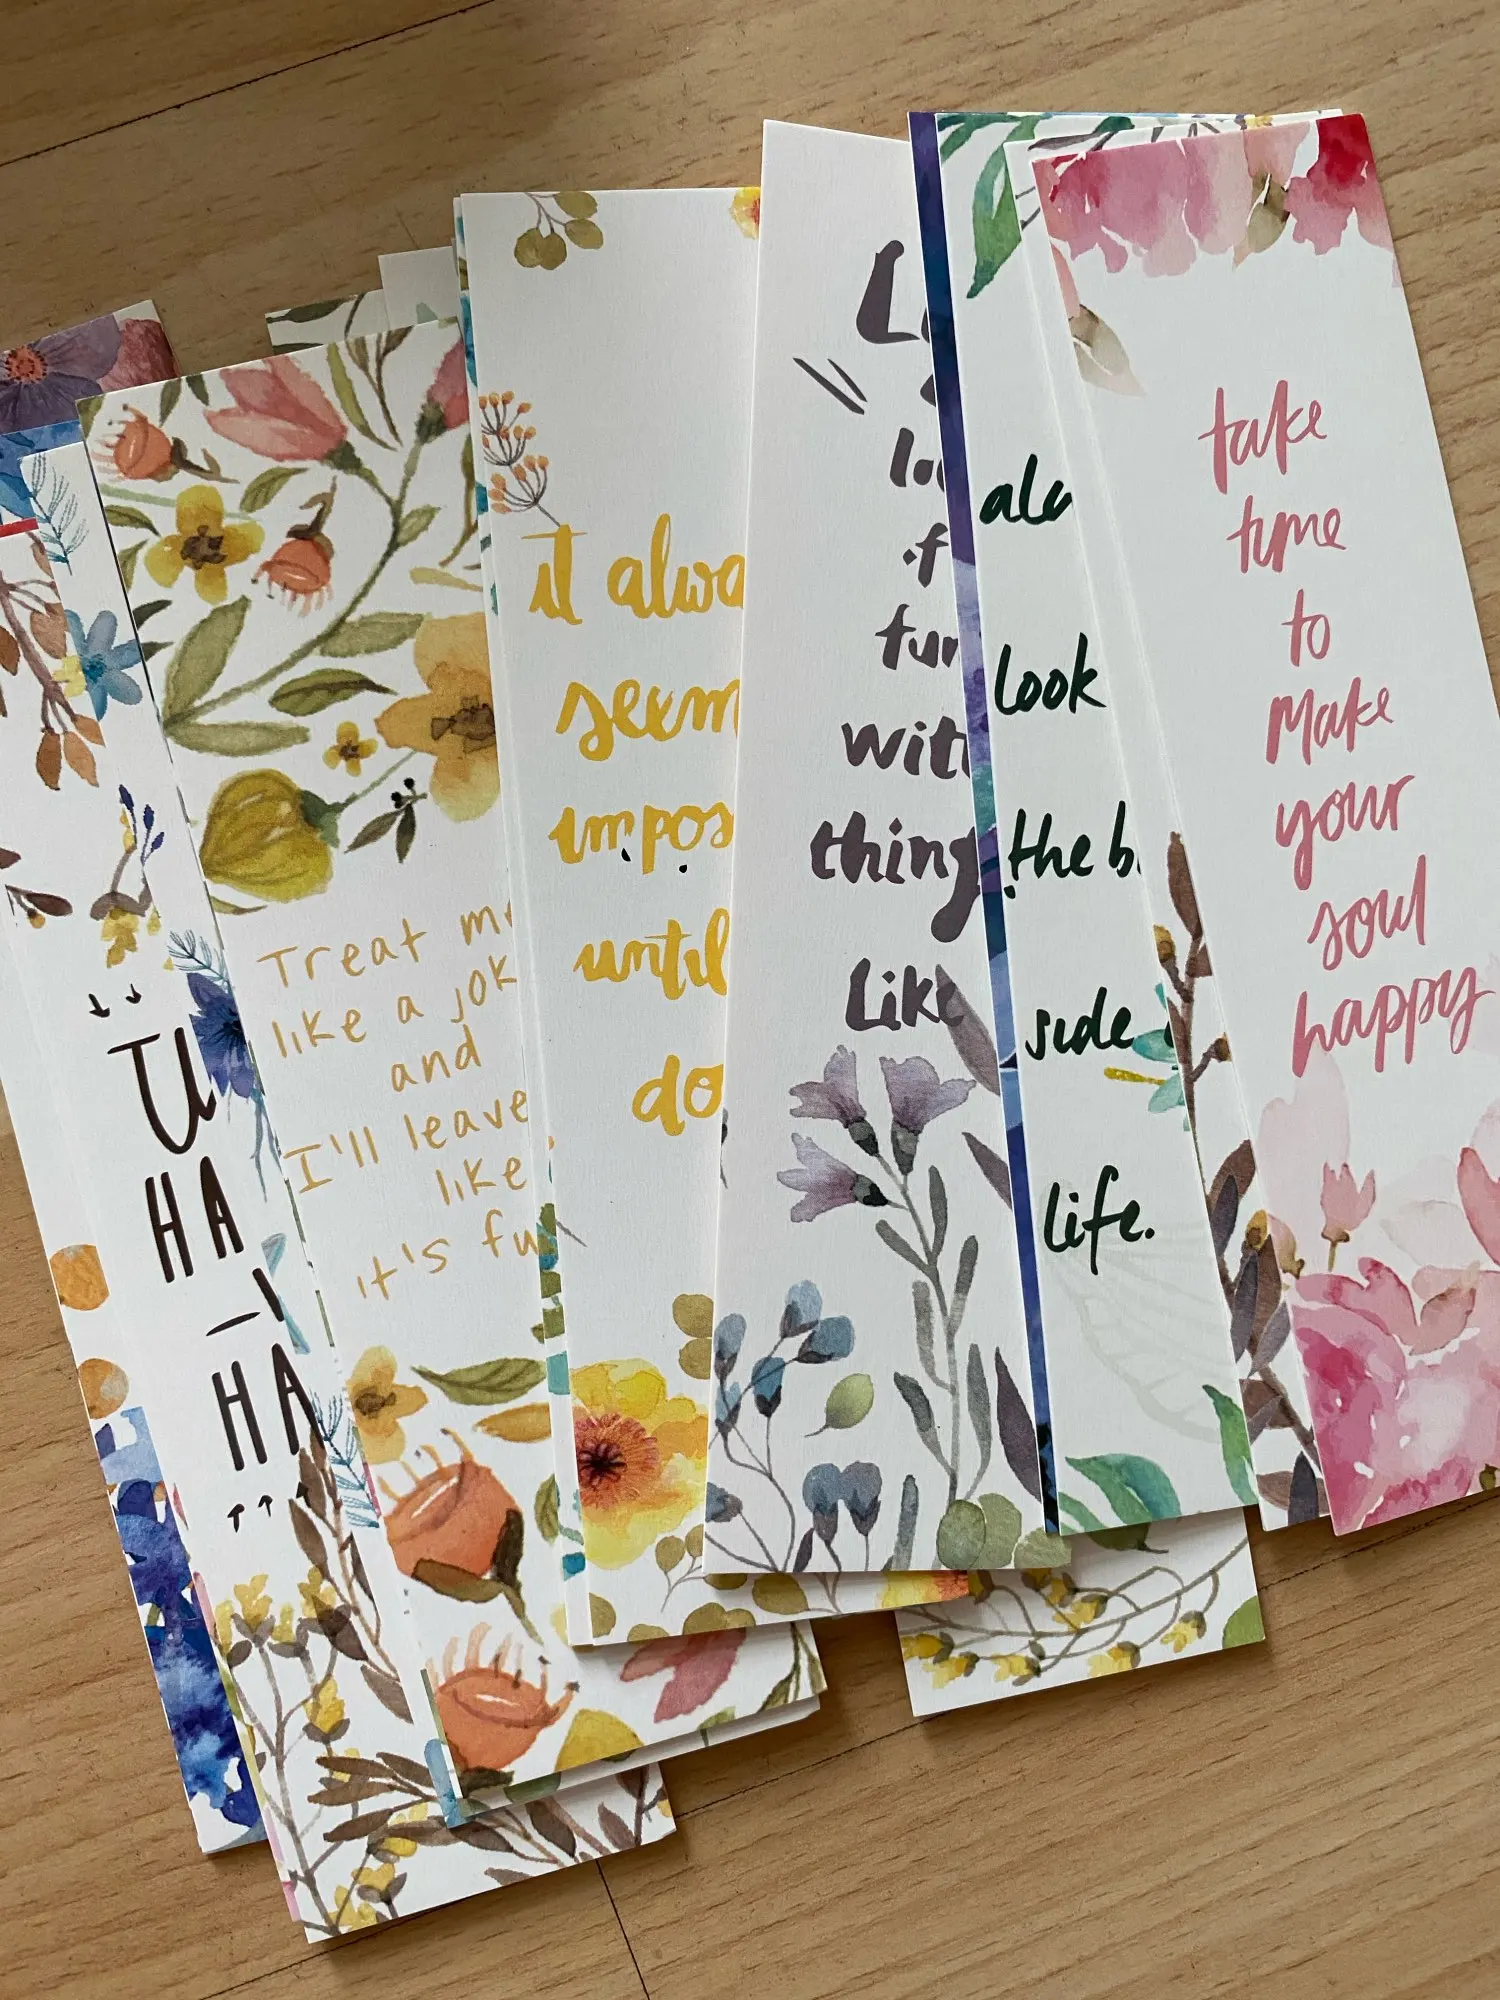 TU
HA
HA
Treat m
like a jok
and
I'll leave
like
it's fu
it alwa
seem
impos
until
do
L
lo
of
fun
with
thing
Like
alw
look
the b
side
life.
take
time
to
Make
your
soul
happy